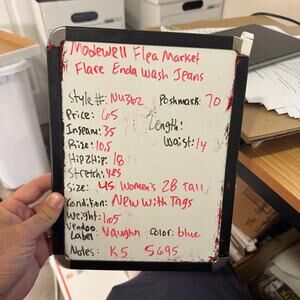 Madewell Flea Market
Flare Enda Wash Jeans
Style#: NU362 Poshmark: 70
Price: 65 Length:
Inseam: 35 Waist: 14
Rize: 10.5
Hip2Hip: 18
Stretch: Yes
Size: US Women's 28 Tall
Condition: New with Tags
Weight: 1.05
Vendoo Label: Vaughn Color: blue
Notes: K5 5695